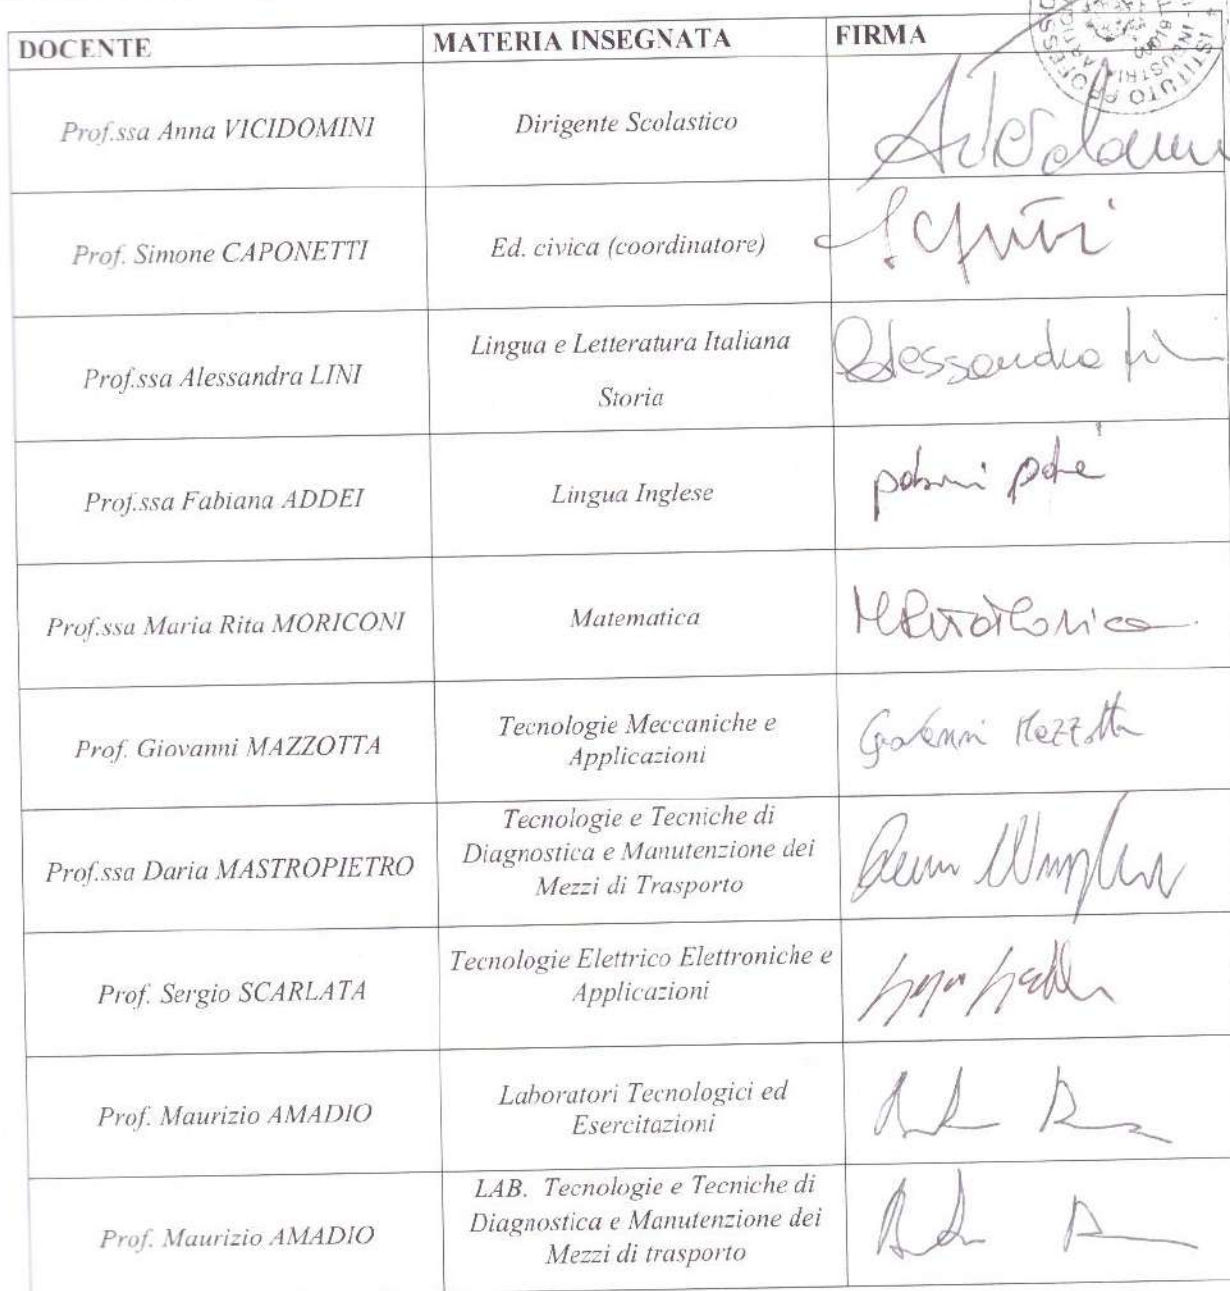 DOCENTE MATERIA INSEGNATA FIRMA
Prof.ssa Anna VICIDOMINI Dirigente Scolastico
Prof. Simone CAPONETTI Ed. civica (coordinatore)
Prof.ssa Alessandra LINI Lingua e Letteratura Italiana
Storia
Alessandra
Prof.ssa Fabiana ADDEI Lingua Inglese
Prof.ssa Maria Rita MORICONI Matematica
Prof. Giovanni MAZZOTTA Tecnologie Meccaniche e
Applicazioni
Giovanni Mazzotta
Prof.ssa Daria MASTROPIETRO Tecnologie e Tecniche di
Diagnostica e Manutenzione dei
Mezzi di Trasporto
Prof. Sergio SCARLATA Tecnologie Elettrico Elettroniche e
Applicazioni
Prof. Maurizio AMADIO Laboratori Tecnologici ed
Esercitazioni
Prof. Maurizio AMADIO LAB. Tecnologie e Tecniche di
Diagnostica e Manutenzione dei
Mezzi di trasporto
ISTITUTO